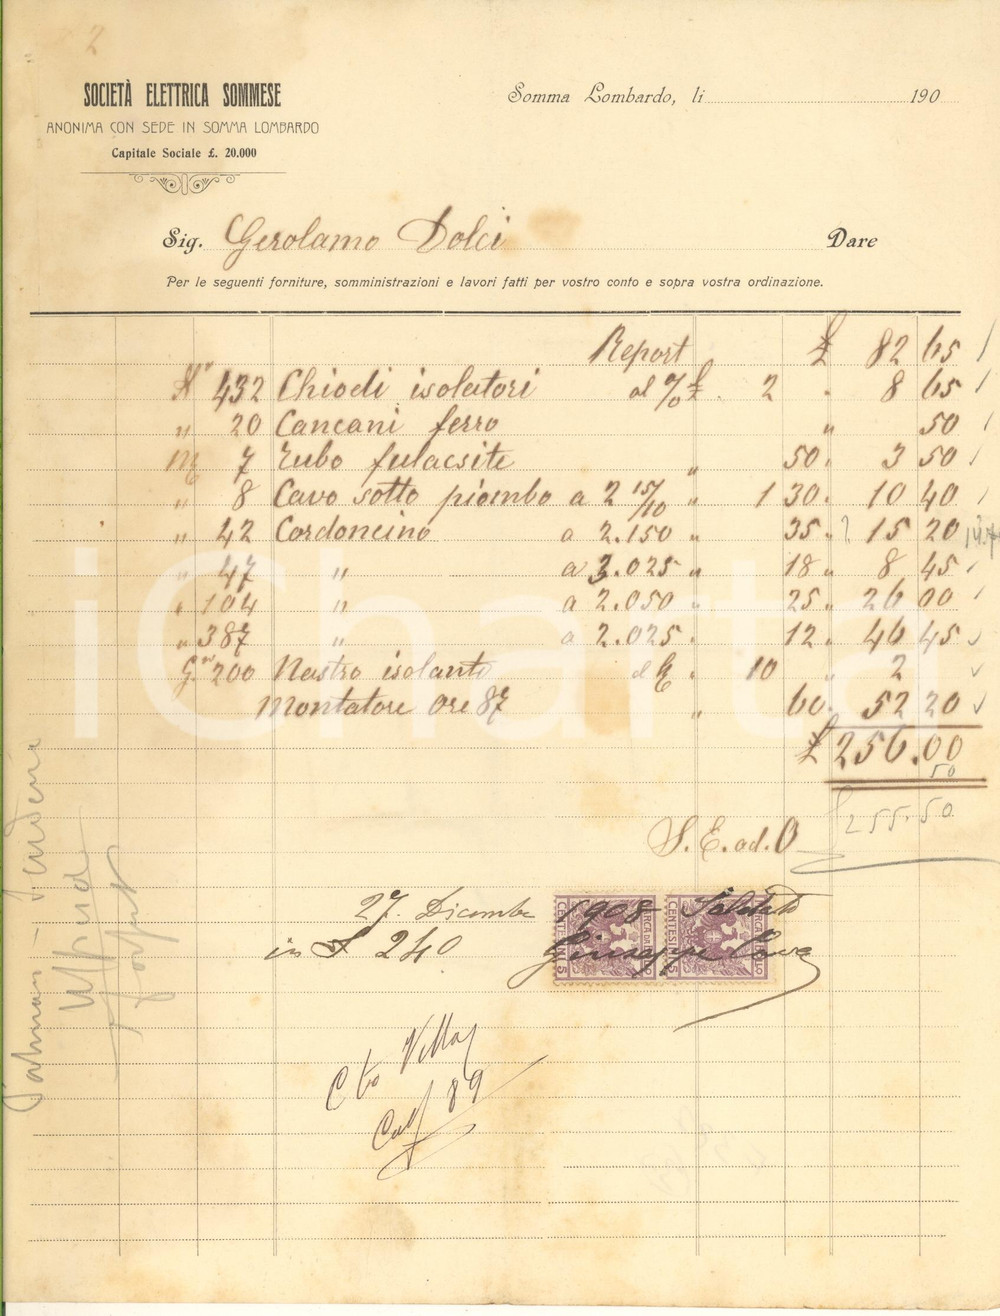 2
SOCIETÀ ELETTRICA SOMMESE
ANONIMA CON SEDE IN SOMMA LOMBARDO
Capitale Sociale £. 20.000
Somma Lombardo, li 190
Sig. Gerolamo Dolci Dare
Per le seguenti forniture, somministrazioni e lavori fatti per vostro conto e sopra vostra ordinazione.
Report £ 82 65
N° 432 Chiodi isolatori al % £ 2 " 8 65
" 20 Cancani ferro " 50
M 7 Tubo fulacsite " 50 " 3 50
" 8 Cavo sotto piombo a 2 15/10 " 1 30 " 10 40
" 42 Cordoncino a 2.150 " 35 " 15 20
" 47 " a 3.025 " 18 " 8 45
" 104 " a 2.050 " 25 " 26 00
" 387 " a 2.025 " 12 " 46 45
Gr 200 Nastro isolante al K " 10 " 2
Montatore ore 87 " 60 " 52 20
£ 256.00
50
£ 255.50
S. E. ad. O
27. Dicembre 1908 Saldato
in £ 240 Giuseppe Cova
CENTESIMI 5
CENTESIMI 5
Cto Villa
89
iCharta